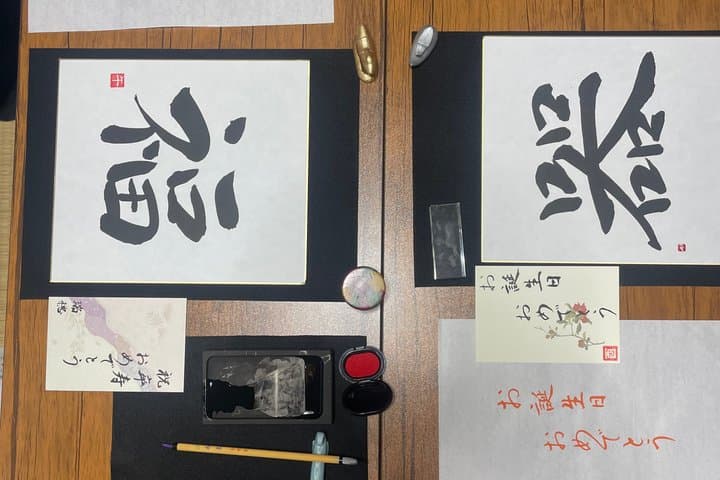 福
器
祝卒寿
おめでとう
お誕生日
おめでとう
お誕生日
おめでとう